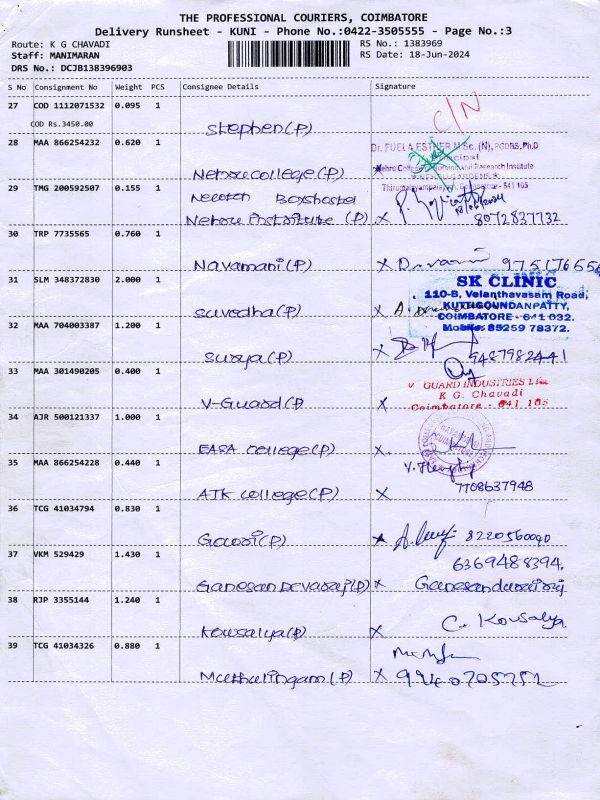 THE PROFESSIONAL COURIERS, COIMBATORE
Delivery Runsheet - KUNI - Phone No.:0422-3505555 - Page No.:3
Route: K G CHAVADI
Staff: MANIMARAN
DRS No.: DCJB138396903
RS No.: 1383969
RS Date: 18-Jun-2024
S No Consignment No Weight PCS Consignee Details Signature
27 COD 1112071532 0.095 1
COD Rs.3450.00
Stephen(P) C/N
28 MAA 866254232 0.620 1
Nehru college(P)
Dr. FUELA ESTHER M.Sc. (N), PGDRS, Ph.D
Principal
Nehru College of Nursing and Research Institute
Thirumalayampalayam, Coimbatore - 641 105
29 TMG 200592507 0.155 1
Boyshostel
Nehru Institute (P) X 8072837732
30 TRP 7735565 0.760 1
Navamani(P) X
31 SLM 348372830 2.000 1
SK CLINIC
110-B, Velanthavasam Road,
KUTHGOUNDANPATTY,
COIMBATORE - 641 032.
Mobile: 85259 78372.
Suvedha(P) X
32 MAA 704003387 1.200 1
Surya(P) X 9487982441
33 MAA 301490205 0.400 1
V-Guard(P) X
V GUARD INDUSTRIES Ltd.
K G. Chavadi
Coimbatore - 641 105
34 AJR 500121337 1.000 1
EASA College(P) X.
35 MAA 866254228 0.440 1
AJK College(P) X 7708637948
36 TCG 41034794 0.830 1
Gowri(P) X 8220560090
37 VKM 529429 1.430 1
6369488394.
Ganesan Devaraj(P) X
38 RJP 3355144 1.240 1
Kowsalya(P) X C. Kousalya
39 TCG 41034326 0.880 1
Muthulingam(P) X 9940705752